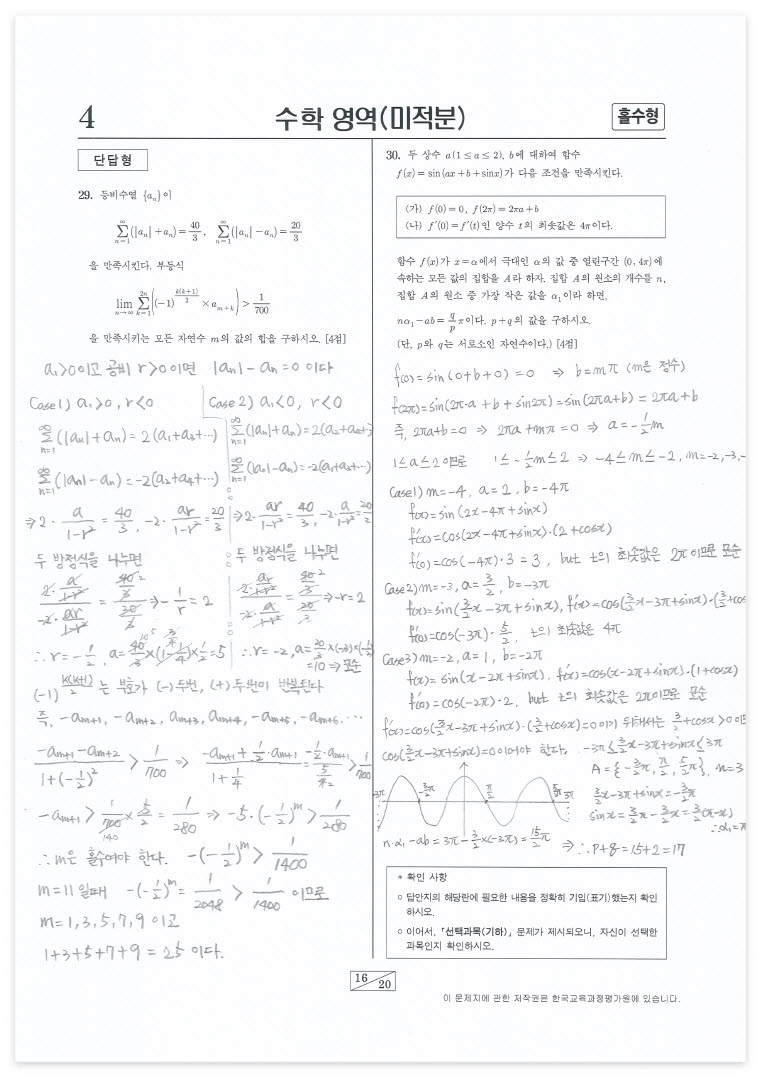 4
수학 영역(미적분)
홀수형
단답형
29. 등비수열 {aₙ}이
∑_{n=1}^{∞}(|aₙ|+aₙ)=40/3, ∑_{n=1}^{∞}(|aₙ|-aₙ)=20/3
을 만족시킨다. 부등식
lim_{n→∞} ∑_{k=1}^{2n}((-1)^{k(k+1)/2} × a_{m+k}) > 1/700
을 만족시키는 모든 자연수 m의 값의 합을 구하시오. [4점]
a₁>0이고 공비 r>0이면 |aₙ|-aₙ=0 이다
Case1) a₁>0, r<0
∑_{n=1}^{∞}(|aₙ|+aₙ) = 2(a₁+a₃+…)
∑_{n=1}^{∞}(|aₙ|-aₙ) = -2(a₂+a₄+…)
⇒ 2·a/(1-r²) = 40/3, -2·ar/(1-r²) = 20/3
두 방정식을 나누면
(2·a/(1-r²))/(-2·ar/(1-r²)) = (40/3)/(20/3) ⇒ -1/r = 2
∴ r=-1/2, a=40/3×(1-1/4)×1/2=5
Case2) a₁<0, r<0
∑_{n=1}^{∞}(|aₙ|+aₙ) = 2(a₂+a₄+
∑_{n=1}^{∞}(|aₙ|-aₙ) = -2(a₁+a₃+…)
⇒ 2·ar/(1-r²) = 40/3, -2·a/(1-r²) = 20/3
두 방정식을 나누면
(2·ar/(1-r²))/(-2·a/(1-r²)) = (40/3)/(20/3) ⇒ -r=2
∴ r=-2, a=20/3×(-3)×(-1/2)
=10 ⇒ 모순
(-1)^{k(k+1)/2} 는 부호가 (-) 두번, (+) 두번이 반복된다
즉, -a_{m+1}, -a_{m+2}, a_{m+3}, a_{m+4}, -a_{m+5}, -a_{m+6}, …
(-a_{m+1}-a_{m+2})/(1+(-1/2)²) > 1/700 ⇒ (-a_{m+1}+1/2·a_{m+1})/(1+1/4) = (-1/2·a_{m+1})/(5/4) > 1/700
-a_{m+1} > 1/700 × 5/2 = 1/280 ⇒ -5·(-1/2)^m > 1/280
∴ m은 홀수여야 한다. -(-1/2)^m > 1/1400
m=11일때 -(-1/2)^m = 1/2048 > 1/1400 이므로
m=1,3,5,7,9 이고
1+3+5+7+9 = 25 이다.
30. 두 상수 a(1≤a≤2), b에 대하여 함수
f(x)=sin(ax+b+sinx)가 다음 조건을 만족시킨다.
(가) f(0)=0, f(2π)=2πa+b
(나) f′(0)=f′(t)인 양수 t의 최솟값은 4π이다.
함수 f(x)가 x=α에서 극대인 α의 값 중 열린구간 (0, 4π)에
속하는 모든 값의 집합을 A라 하자. 집합 A의 원소의 개수를 n,
집합 A의 원소 중 가장 작은 값을 α₁이라 하면,
nα₁-ab=q/p π이다. p+q의 값을 구하시오.
(단, p와 q는 서로소인 자연수이다.) [4점]
f(0)=sin(0+b+0)=0 ⇒ b=mπ (m은 정수)
f(2π)=sin(2π·a+b+sin2π)=sin(2πa+b)=2πa+b
즉, 2πa+b=0 ⇒ 2πa+mπ=0 ⇒ a=-1/2m
1≤a≤2이므로 1≤-1/2m≤2 ⇒ -4≤m≤-2, m=-2,-3,-
Case1) m=-4, a=2, b=-4π
f(x)=sin(2x-4π+sinx)
f′(x)=cos(2x-4π+sinx)·(2+cosx)
f′(0)=cos(-4π)·3=3, but t의 최솟값은 2π이므로 모순
Case2) m=-3, a=3/2, b=-3π
f(x)=sin(3/2x-3π+sinx), f′(x)=cos(3/2x-3π+sinx)·(3/2+cos
f′(0)=cos(-3π)·5/2, t의 최솟값은 4π
Case3) m=-2, a=1, b=-2π
f(x)=sin(x-2π+sinx), f′(x)=cos(x-2π+sinx)·(1+cosx)
f′(0)=cos(-2π)·2, but t의 최솟값은 2π이므로 모순
f′(x)=cos(3/2x-3π+sinx)·(3/2+cosx)=0이기 위해서는 3/2+cosx>0이므
cos(3/2x-3π+sinx)=0이어야 한다. -3π≤3/2x-3π+sinx≤3π
A={-3/2π, π/2, 5/2π}, n=3
3/2x-3π+sinx=-3/2π
sinx=3/2π-3/2x=3/2(π-x)
∴α₁=π
-3π -3/2π π/2 5/2π 3π
n·α₁-ab=3π-3/2×(-3π)=15/2π
⇒ ∴ p+q=15+2=17
* 확인 사항
○ 답안지의 해당란에 필요한 내용을 정확히 기입(표기)했는지 확인
하시오.
○ 이어서, 「선택과목(기하)」 문제가 제시되오니, 자신이 선택한
과목인지 확인하시오.
16/20
이 문제지에 관한 저작권은 한국교육과정평가원에 있습니다.